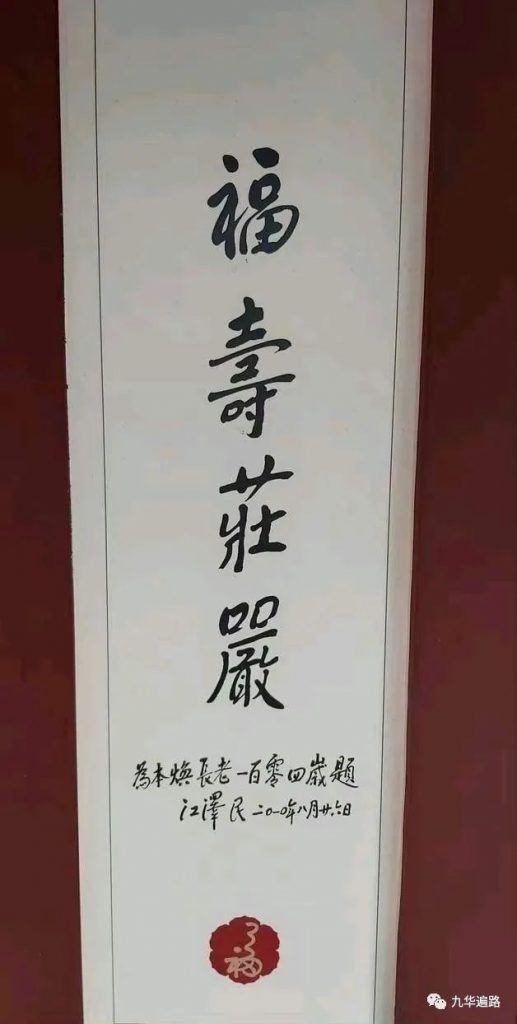 福壽莊嚴
為本煥長老一百零四歲題
江澤民二〇一〇年八月廿六日
福
九华遍路